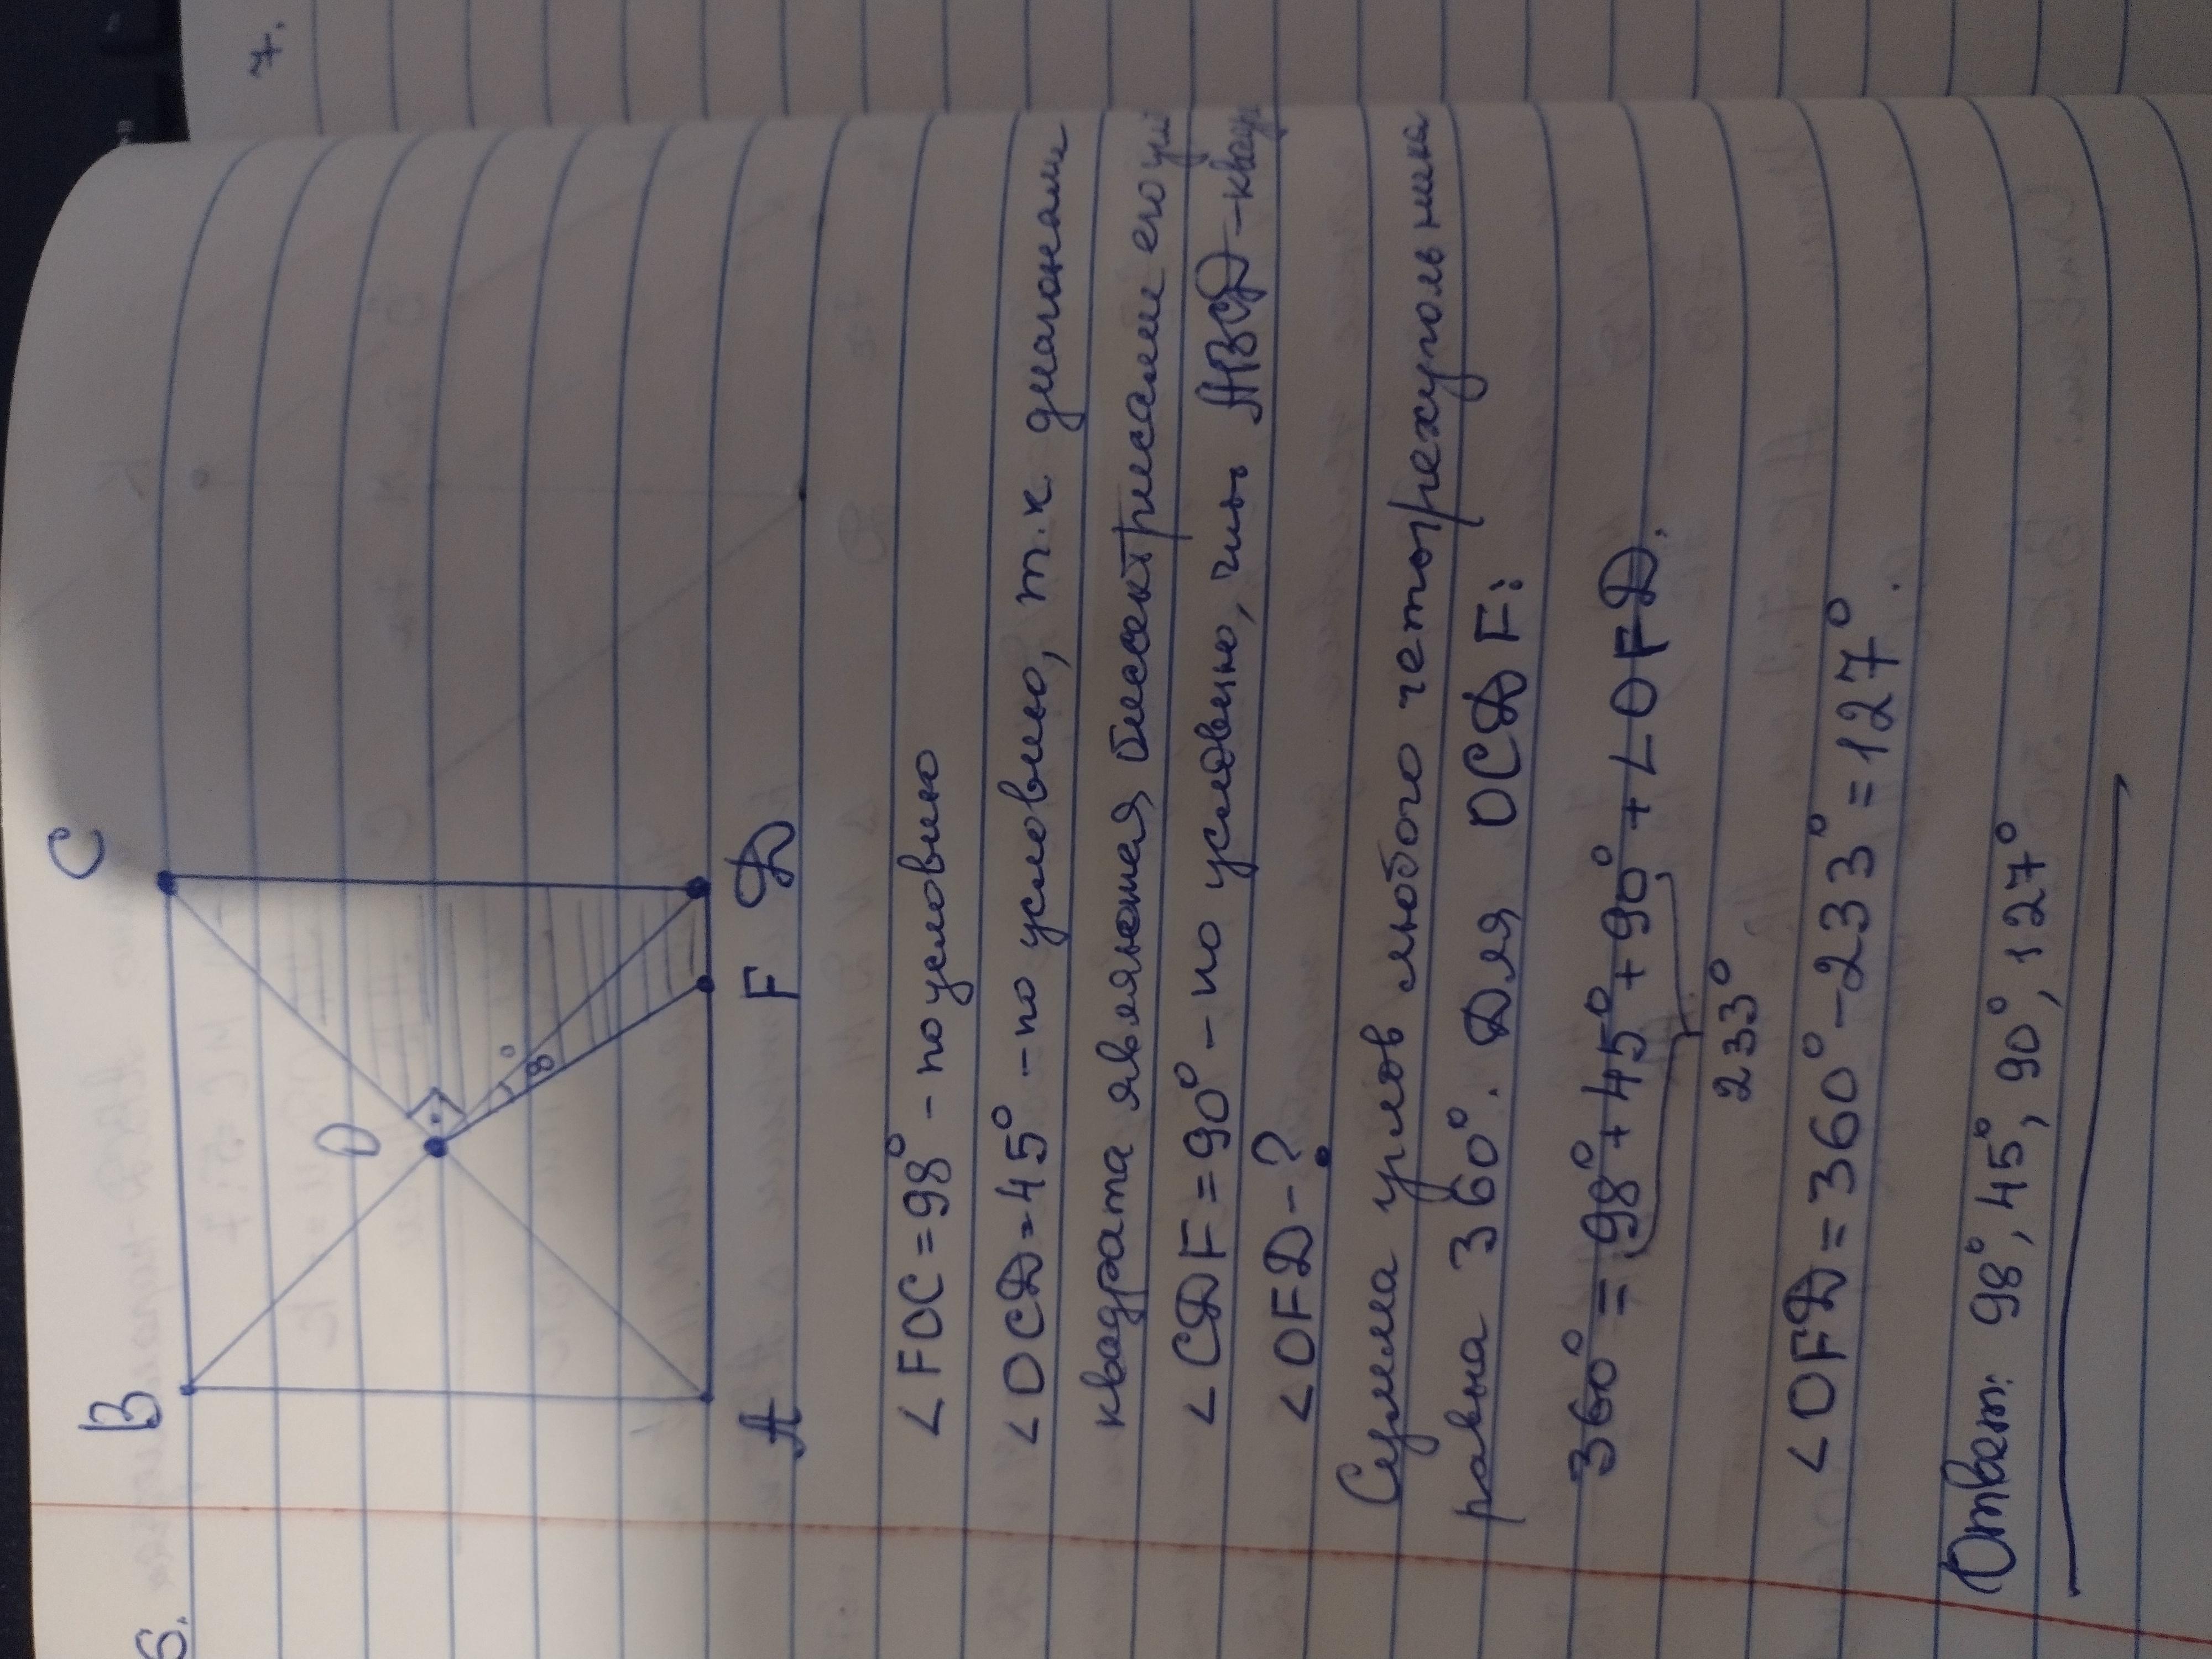 7.
6.
B C
O
8°
A F D
∠FOC = 98° - по условию
∠OCD = 45° - по условию, т.к. диагонали
квадрата являются биссектрисами его
∠CDF = 90° - по условию, ABCD - квад
∠OFD - ?
Сумма углов любого четырехугольника
равна 360°. Для OCDF:
360° = 98° + 45° + 90° + ∠OFD.
233°
∠OFD = 360° - 233° = 127°.
Ответ: 98°, 45°, 90°, 127°